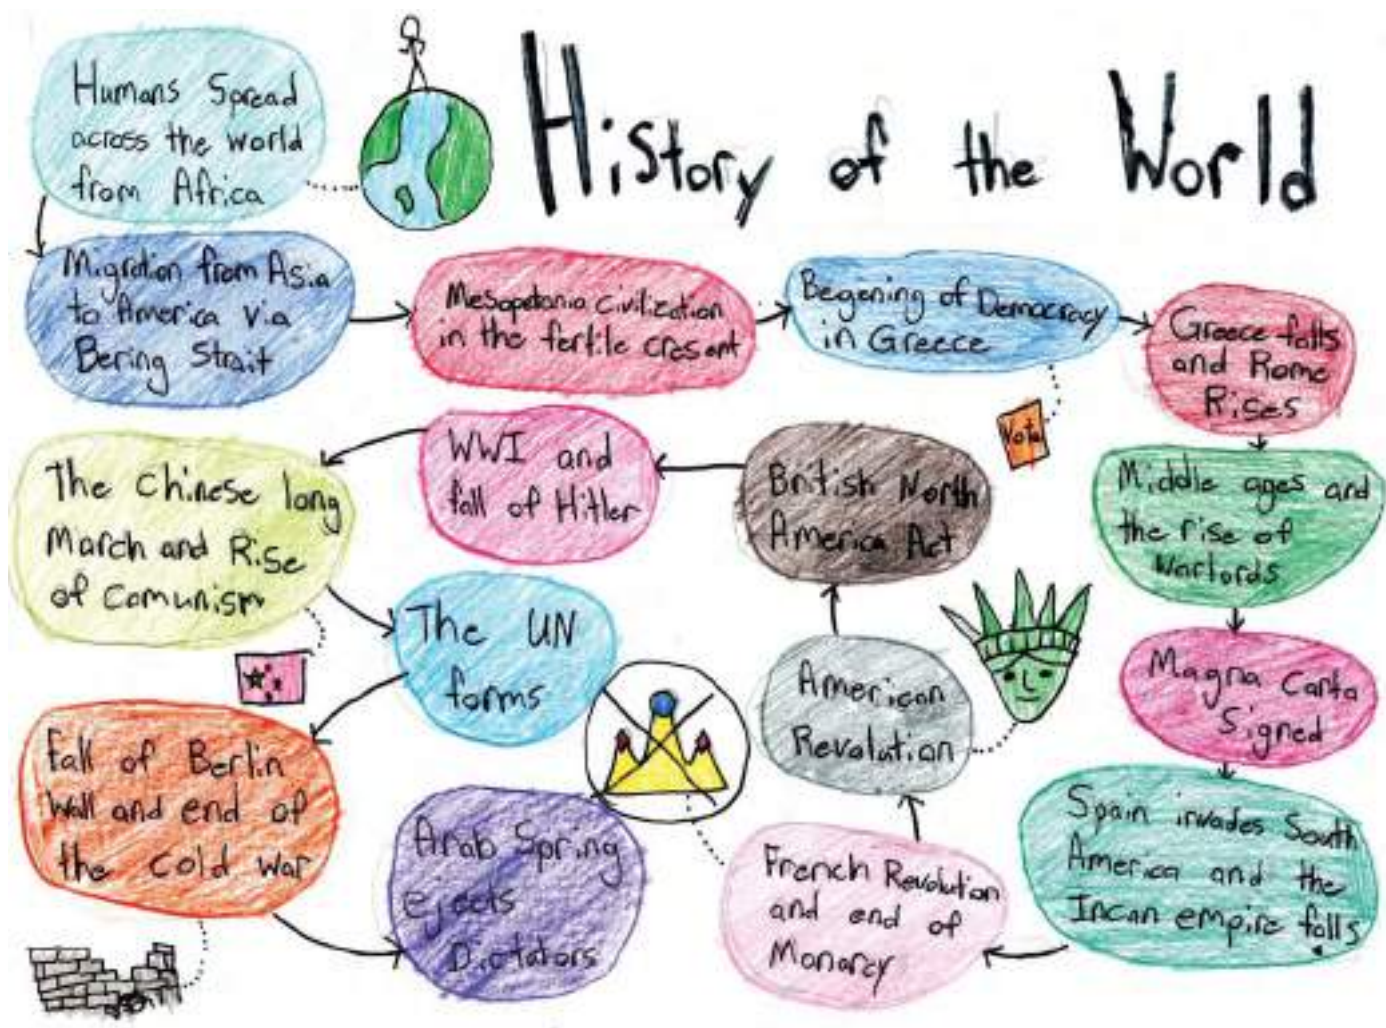 History of the World
Humans Spread
across the world
from Africa
Migration from Asia
to America via
Bering Strait
Mesopotamia civilization
in the fertile cresent
Begening of Democracy
in Greece
Vote
Greece falls
and Rome
Rises
Middle ages and
the rise of
Warlords
Magna Carta
Signed
Spain invades South
America and the
Incan empire falls.
French Revolution
and end of
Monarcy
American
Revolution
British North
America Act
WWI and
fall of Hitler
The Chinese long
March and Rise
of Comunism
The UN
forms
Fall of Berlin
Wall and end of
the cold war
Arab Spring
ejects
Dictators